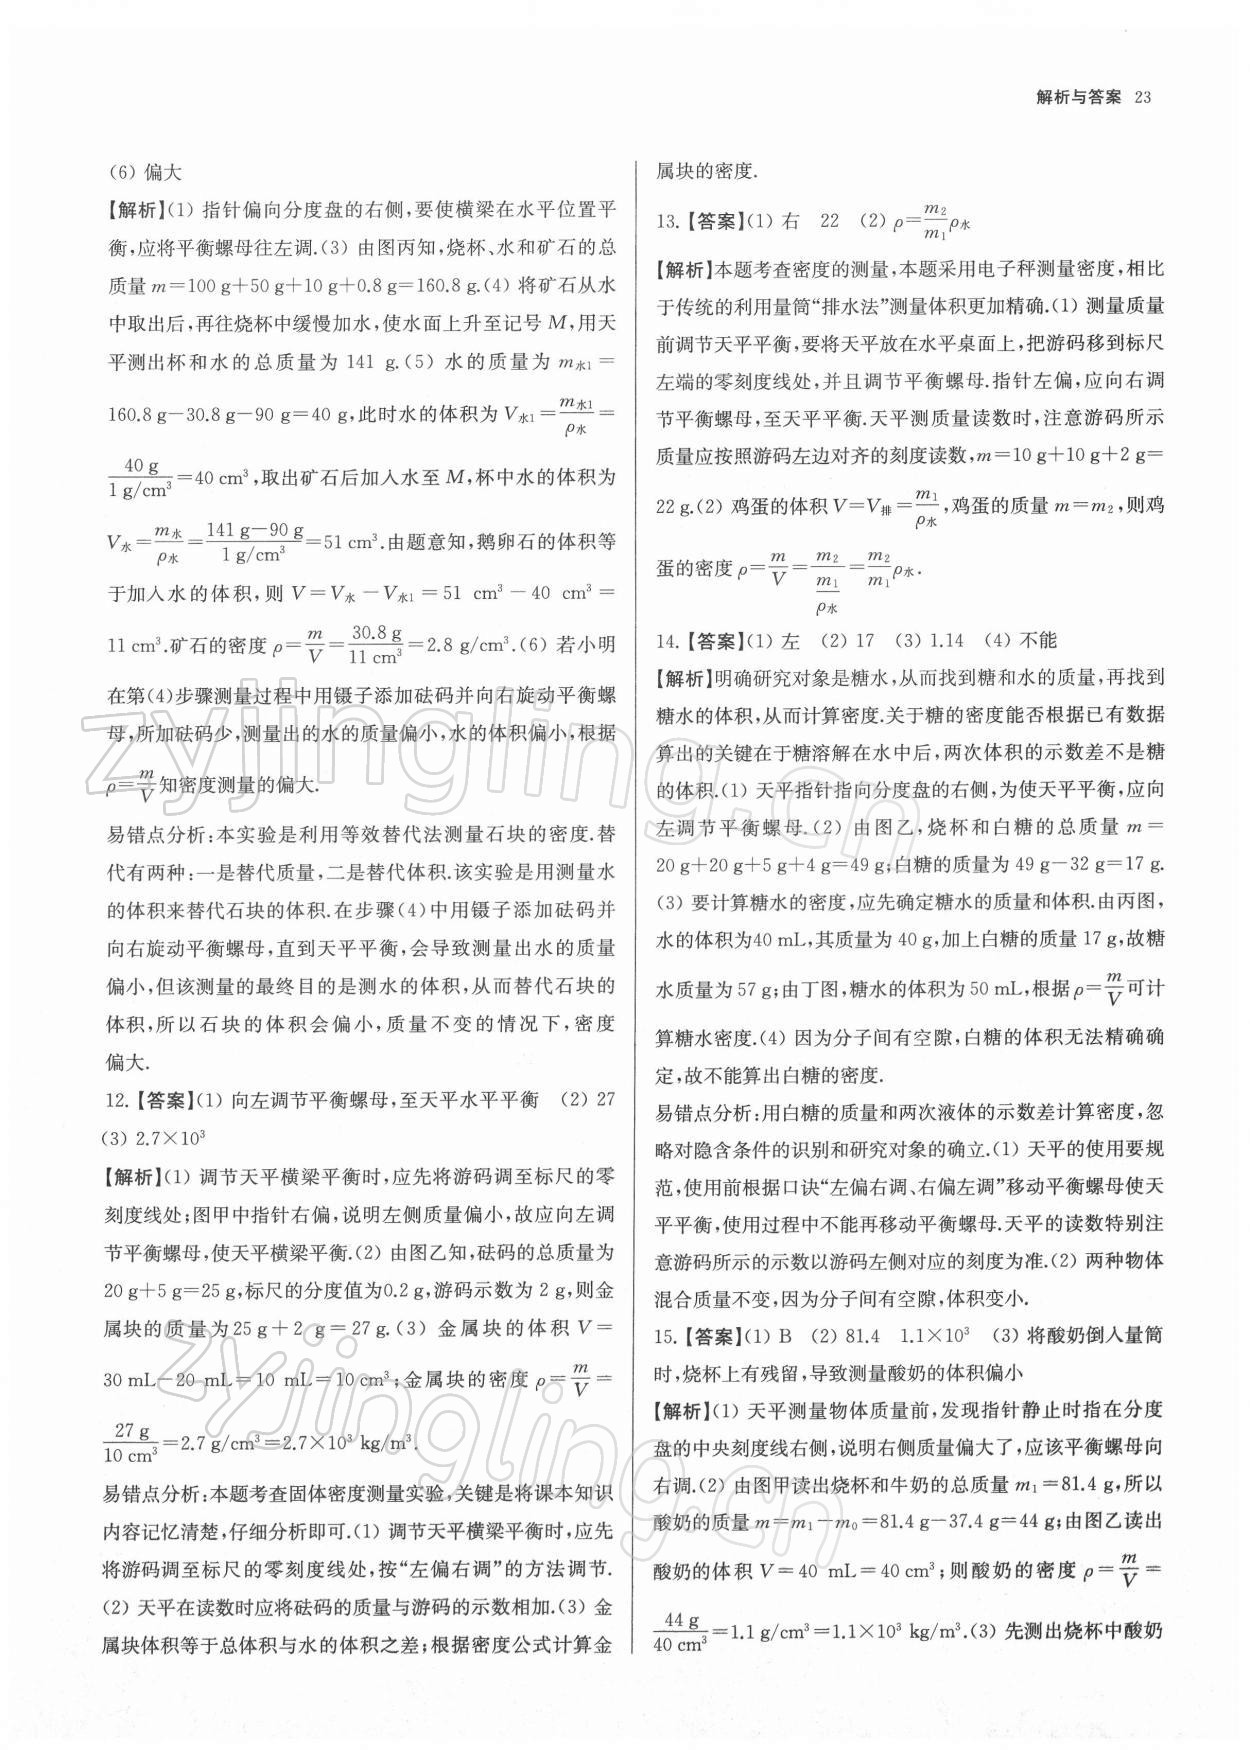 解析与答案 23
(6) 偏大
【解析】(1) 指针偏向分度盘的右侧,要使横梁在水平位置平
衡,应将平衡螺母往左调.(3) 由图丙知,烧杯、水和矿石的总
质量 m=100 g+50 g+10 g+0.8 g=160.8 g.(4) 将矿石从水
中取出后,再往烧杯中缓慢加水,使水面上升至记号 M,用天
平测出杯和水的总质量为 141 g.(5) 水的质量为 m水1=
160.8 g−30.8 g−90 g=40 g,此时水的体积为 V水1=m水1/ρ水=
40 g/1 g/cm³=40 cm³,取出矿石后加入水至 M,杯中水的体积为
V水=m水/ρ水=141 g−90 g/1 g/cm³=51 cm³.由题意知,鹅卵石的体积等
于加入水的体积,则 V=V水−V水1=51 cm³−40 cm³=
11 cm³.矿石的密度 ρ=m/V=30.8 g/11 cm³=2.8 g/cm³.(6) 若小明
在第(4)步骤测量过程中用镊子添加砝码并向右旋动平衡螺
母,所加砝码少,测量出的水的质量偏小,水的体积偏小,根据
ρ=m/V知密度测量的偏大.
易错点分析:本实验是利用等效替代法测量石块的密度.替
代有两种:一是替代质量,二是替代体积.该实验是用测量水
的体积来替代石块的体积.在步骤(4)中用镊子添加砝码并
向右旋动平衡螺母,直到天平平衡,会导致测量出水的质量
偏小,但该测量的最终目的是测水的体积,从而替代石块的
体积,所以石块的体积会偏小,质量不变的情况下,密度
偏大.
12.【答案】(1) 向左调节平衡螺母,至天平水平平衡 (2) 27
(3) 2.7×10³
【解析】(1) 调节天平横梁平衡时,应先将游码调至标尺的零
刻度线处;图甲中指针右偏,说明左侧质量偏小,故应向左调
节平衡螺母,使天平横梁平衡.(2) 由图乙知,砝码的总质量为
20 g+5 g=25 g,标尺的分度值为0.2 g,游码示数为 2 g,则金
属块的质量为25 g+2 g=27 g.(3) 金属块的体积 V=
30 mL−20 mL=10 mL=10 cm³;金属块的密度 ρ=m/V=
27 g/10 cm³=2.7 g/cm³=2.7×10³ kg/m³.
易错点分析:本题考查固体密度测量实验,关键是将课本知识
内容记忆清楚,仔细分析即可.(1) 调节天平横梁平衡时,应先
将游码调至标尺的零刻度线处,按“左偏右调”的方法调节.
(2) 天平在读数时应将砝码的质量与游码的示数相加.(3) 金
属块体积等于总体积与水的体积之差;根据密度公式计算金
属块的密度.
13.【答案】(1) 右 22 (2) ρ=m₂/m₁ρ水
【解析】本题考查密度的测量,本题采用电子秤测量密度,相比
于传统的利用量筒“排水法”测量体积更加精确.(1) 测量质量
前调节天平平衡,要将天平放在水平桌面上,把游码移到标尺
左端的零刻度线处,并且调节平衡螺母.指针左偏,应向右调
节平衡螺母,至天平平衡.天平测质量读数时,注意游码所示
质量应按照游码左边对齐的刻度读数,m=10 g+10 g+2 g=
22 g.(2) 鸡蛋的体积 V=V排=m₁/ρ水,鸡蛋的质量 m=m₂,则鸡
蛋的密度 ρ=m/V=m₂/(m₁/ρ水)=m₂/m₁ρ水.
14.【答案】(1) 左 (2) 17 (3) 1.14 (4) 不能
【解析】明确研究对象是糖水,从而找到糖和水的质量,再找到
糖水的体积,从而计算密度.关于糖的密度能否根据已有数据
算出的关键在于糖溶解在水中后,两次体积的示数差不是糖
的体积.(1) 天平指针指向分度盘的右侧,为使天平平衡,应向
左调节平衡螺母.(2) 由图乙,烧杯和白糖的总质量 m=
20 g+20 g+5 g+4 g=49 g;白糖的质量为 49 g−32 g=17 g.
(3) 要计算糖水的密度,应先确定糖水的质量和体积.由丙图,
水的体积为40 mL,其质量为 40 g,加上白糖的质量 17 g,故糖
水质量为 57 g;由丁图,糖水的体积为 50 mL,根据 ρ=m/V可计
算糖水密度.(4) 因为分子间有空隙,白糖的体积无法精确确
定,故不能算出白糖的密度.
易错点分析:用白糖的质量和两次液体的示数差计算密度,忽
略对隐含条件的识别和研究对象的确立.(1) 天平的使用要规
范,使用前根据口诀“左偏右调、右偏左调”移动平衡螺母使天
平平衡,使用过程中不能再移动平衡螺母.天平的读数特别注
意游码所示的示数以游码左侧对应的刻度为准.(2) 两种物体
混合质量不变,因为分子间有空隙,体积变小.
15.【答案】(1) B (2) 81.4 1.1×10³ (3) 将酸奶倒入量筒
时,烧杯上有残留,导致测量酸奶的体积偏小
【解析】(1) 天平测量物体质量前,发现指针静止时指在分度
盘的中央刻度线右侧,说明右侧质量偏大了,应该平衡螺母向
右调.(2) 由图甲读出烧杯和牛奶的总质量 m₁=81.4 g,所以
酸奶的质量 m=m₁−m₀=81.4 g−37.4 g=44 g;由图乙读出
酸奶的体积 V=40 mL=40 cm³;则酸奶的密度 ρ=m/V=
44 g/40 cm³=1.1 g/cm³=1.1×10³ kg/m³.(3) 先测出烧杯中酸奶
zyjingling.cn
zyjingling.cn